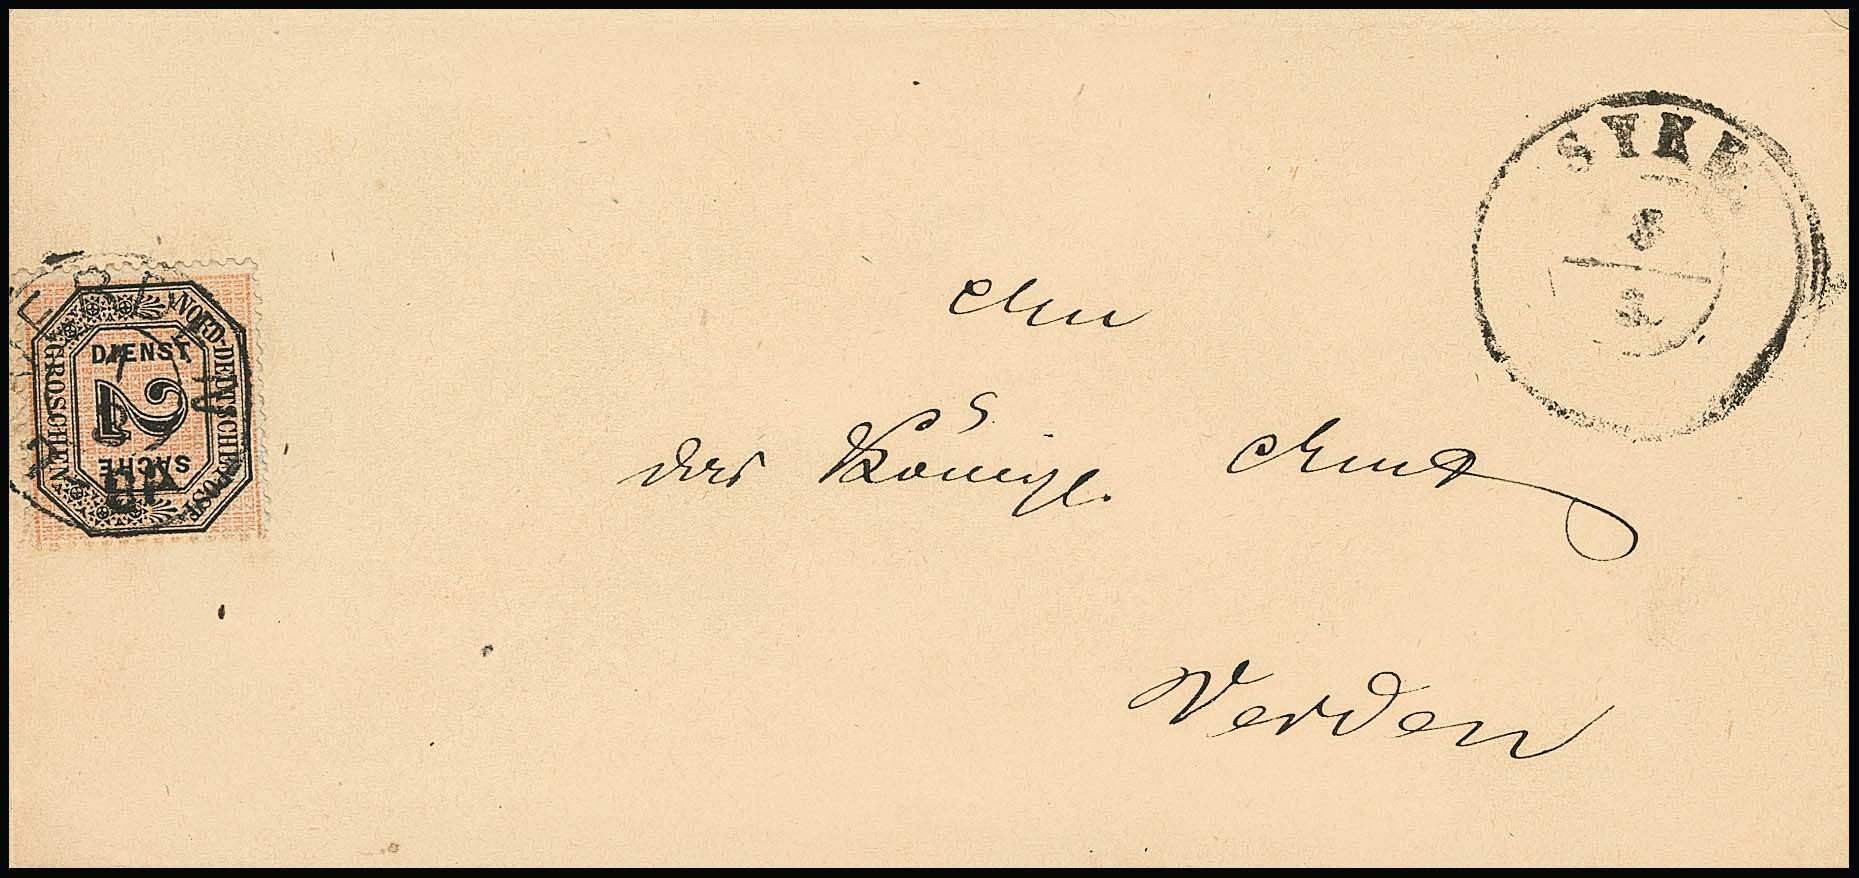 SYKE
8
3
NORD-DEUTSCHE POST
DIENST
2
SACHE
GROSCHEN
An
das Königl. Amt
Verden